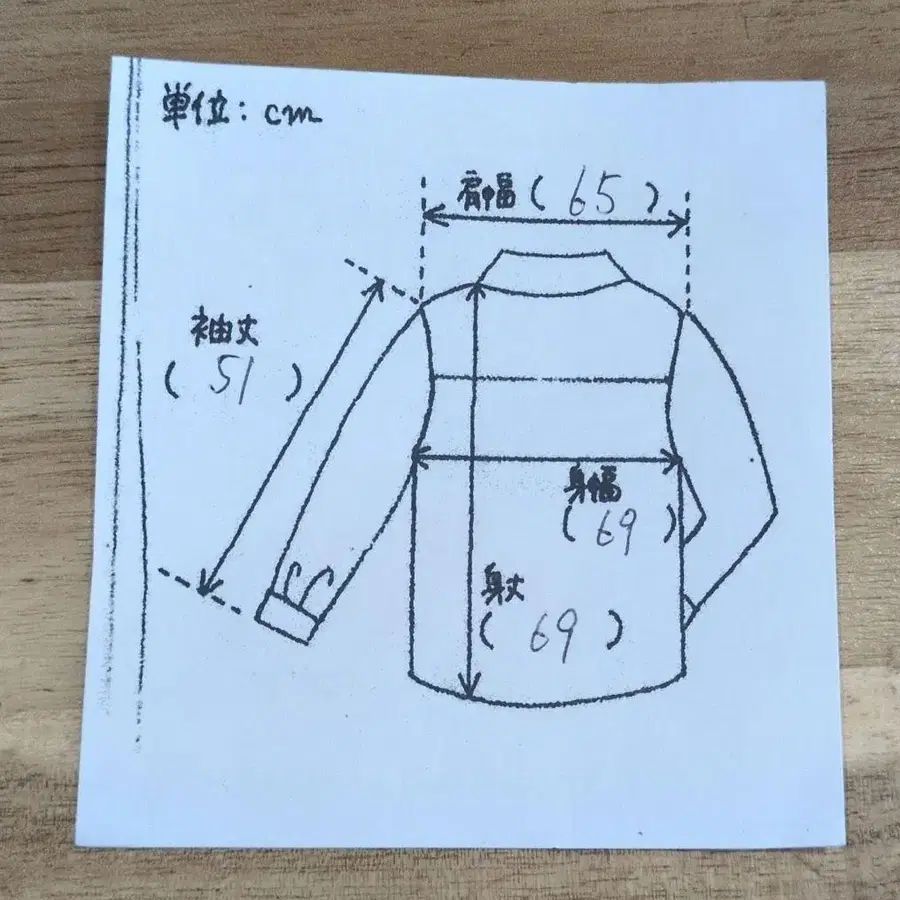 単位:cm
肩幅(65)
袖丈
(51)
身幅
(69)
身丈
(69)